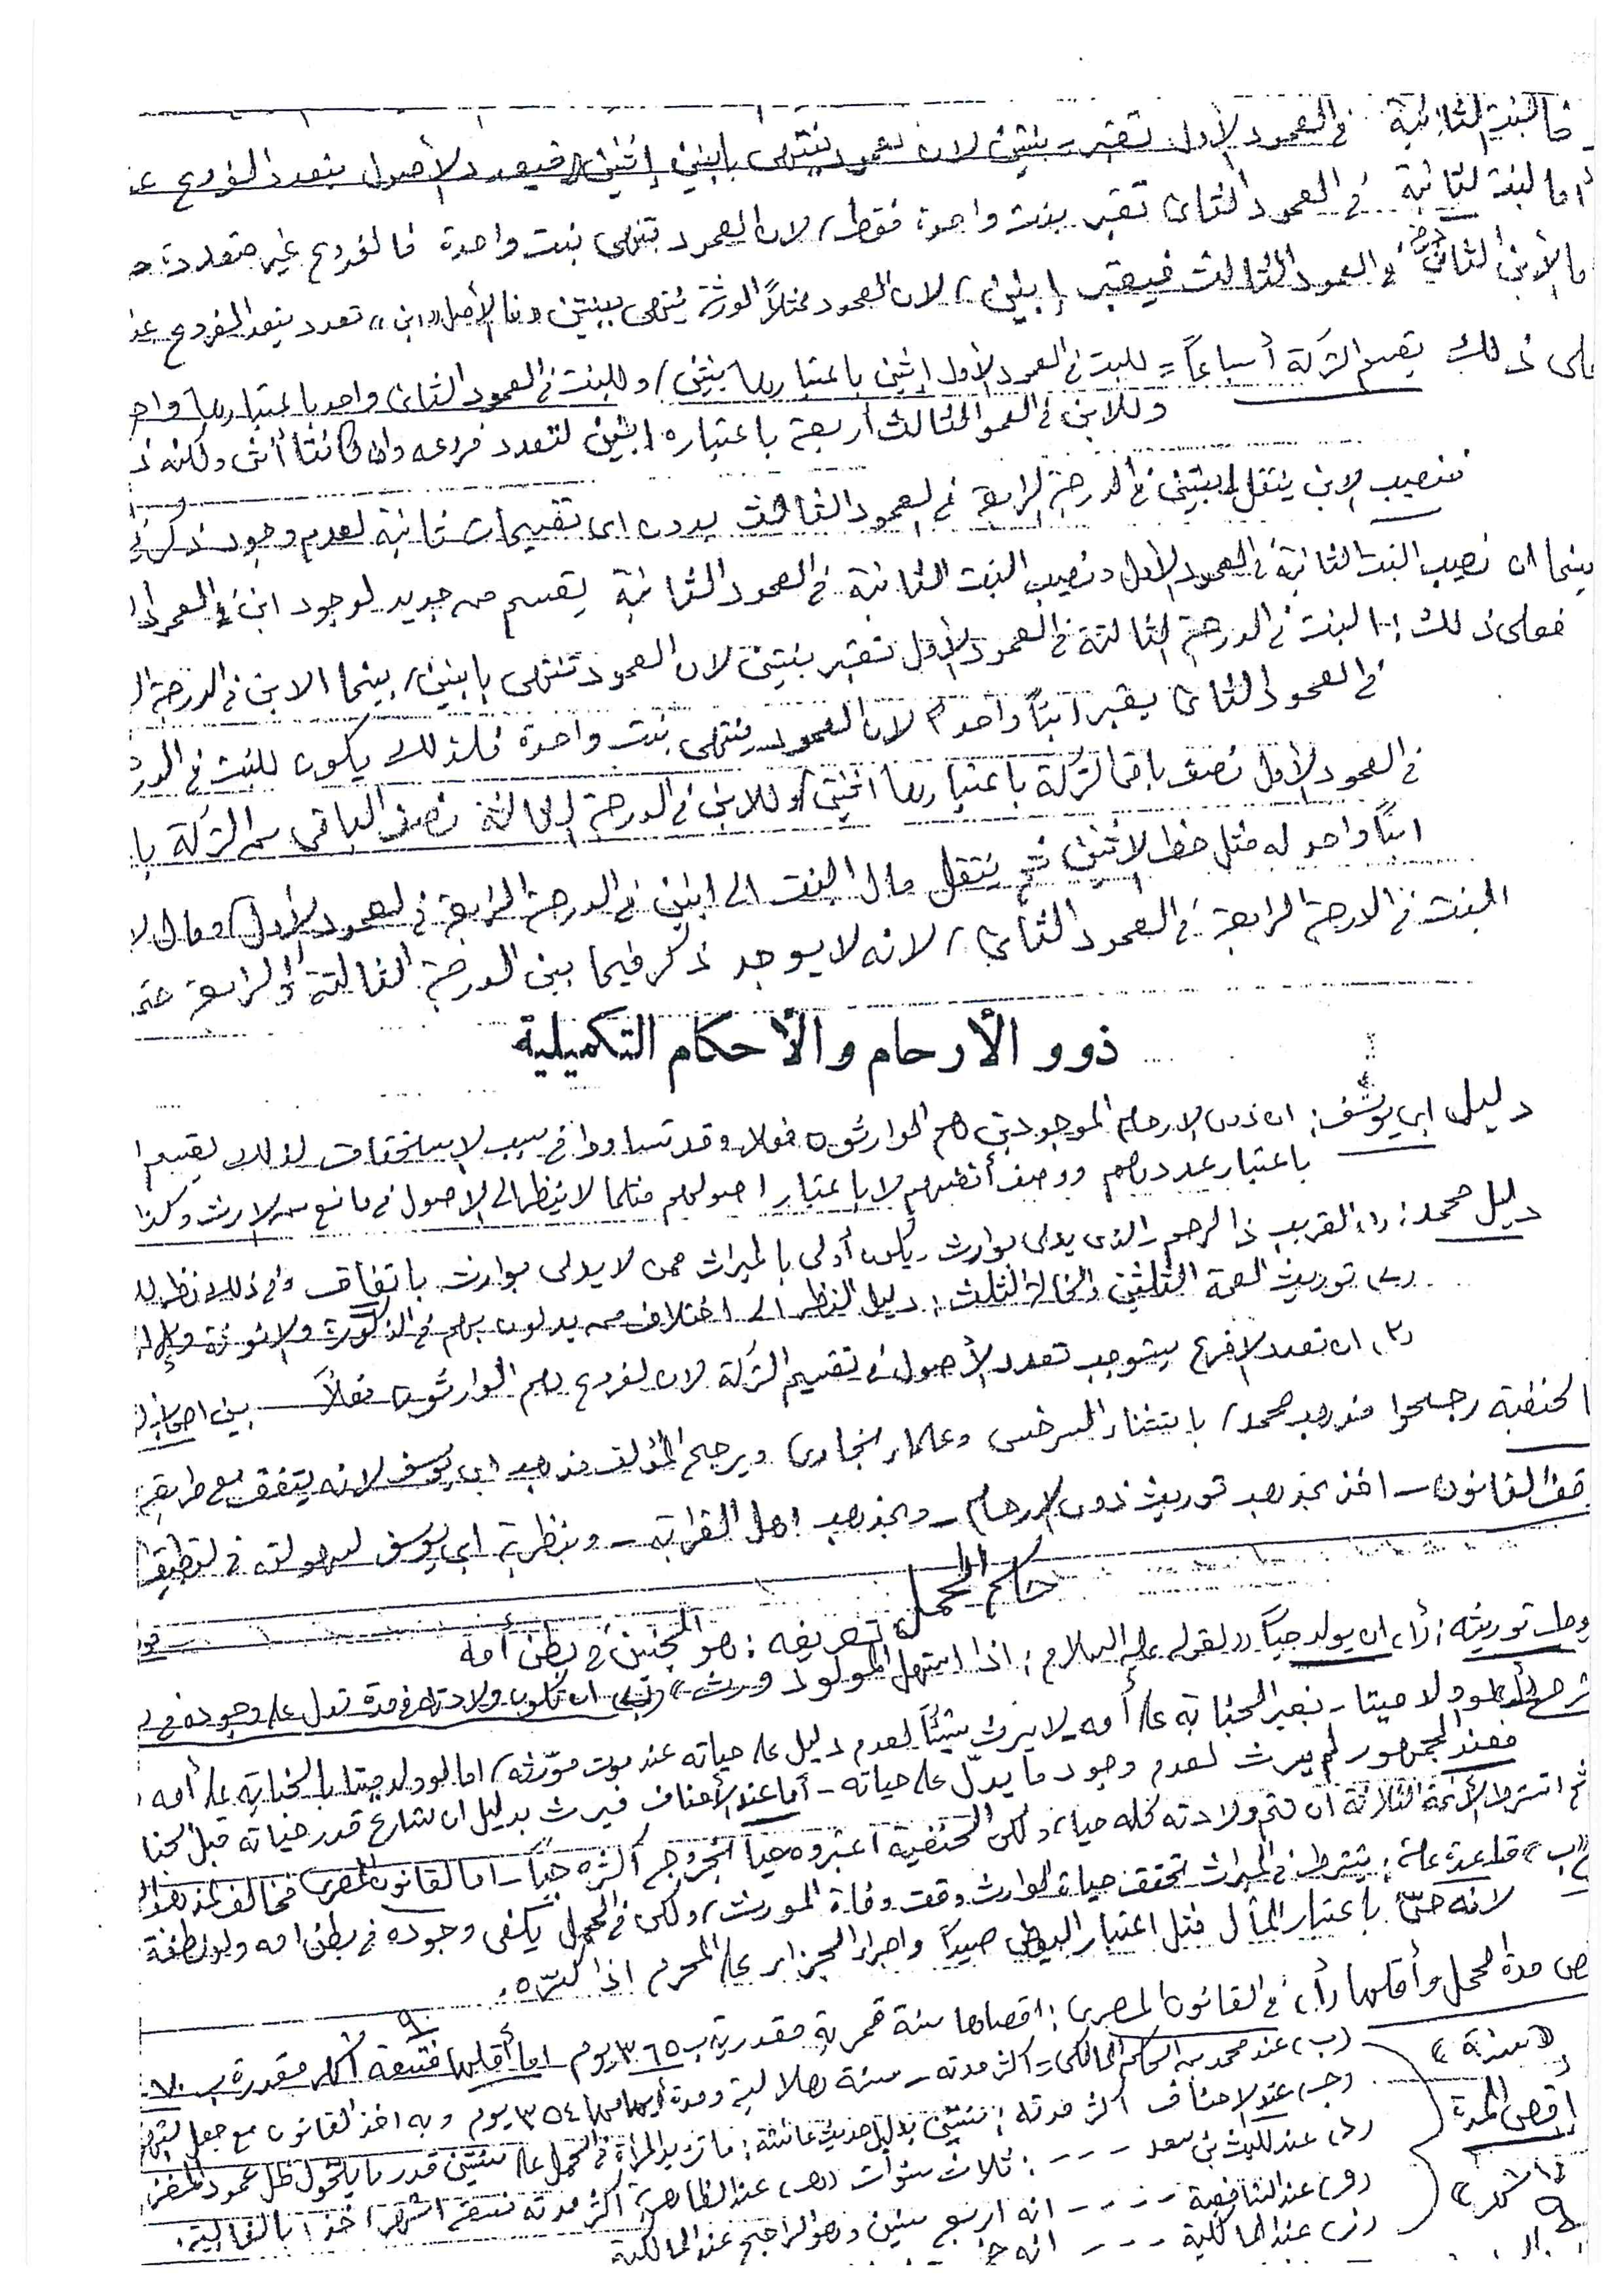 فالبنت الثانية في العمود الأول تعتبر بنتين لان العمود ينتهي بابنين إثنين فيعدد الأصول بتعدد الفروع
اما البنت الثانية في العمود الثاني تعتبر بنت واحدة فقط، لان العمود ينتهي بنت واحدة فالفروع غير متعددة
ما الأبن الثاني في العمود الثالث فيعتبر إبنين، لان العمود مثلاً الورثة ينتهي ببنتين فالأصل «ابن» تعدد بتعدد الفروع
على ذلك تقسم التركة أسباعاً = للبنت في العمود الأول إثنين باعتبارها بنتين، وللبنت في العمود الثاني واحد باعتبارها
وللابن في العمود الثالث أربعة باعتباره إبنين لتعدد فروعه وان كانتا أنثى ولكنه
فنصيب الابن ينتقل لبنتين في الدرجة الرابعة في العمود الثالث بدون اى تقسيمات ثانية لعدم وجود ذكر في
بينما ان نصيب البنت الثانية في العمود الأول ونصيب البنت الثانية في العمود الثانية يقسم من جديد لوجود ابن في العمود
فعلى ذلك: البنت في الدرجة الثالثة في العمود الأول تعتبر بنتين لان العمود تنتهي بابنين، بينما الابن في الدرجة
في العمود الثاني يعتبر ابناً واحد لان العمود ينتهي بنت واحدة فلذلك يكون للبنت في
في العمود الأول نصف باقى التركة باعتبارها اثنتين وللابن في الدرجة الثالثة نصف الباقى من التركة
ابناً واحد له مثل حظ الانثيين ثم ينتقل مال البنت الى ابنين في الدرجة الرابعة في العمود الأول ومال
البنت في الدرجة الرابعة في العمود الثاني، لانه لا يوجد ذكر فيما بين الدرجة الثالثة والرابعة
ذوو الأرحام والأحكام التكميلية
دليل ابي يوسف: ان ذوي الارحام الموجودين هم الوارثون فعلا وقد تساووا في سبب الاستحقاق لذلك يقسم
باعتبار عددهم ووصف أنفسهم لا باعتبار اصولهم مثلما لا ينظر الى الاصول في مانع من الارث وكذا
دليل محمد: (أ) القريب ذا الرحم الذي يدلى بوارث يكون أولى بالميراث ممن لا يدلى بوارث باتفاق وفي ذلك نظر
توريث العمة الثلثين والخالة الثلث: دليل النظر الى اختلاف من يدلون بهم في الذكورة والانوثة
ان تعدد الافرع يستوجب تعدد الأصول في تقسيم التركة لان الفروع هم الوارثون فعلاً
الحنفية رجحوا مذهب محمد، باستثناء السرخسي وعلماء البخارى ويرجح المؤلف مذهب ابى يوسف لانه يتفق مع
القانون - اخذ بمذهب توريث ذوى الارحام - وبمذهب اهل القرابة - وبنظرية ابي يوسف لسهولته في
حكم الحمل
تعريفه: هو الجنين في بطن أمه
توريثه: (أ) ان يولد حياً لقوله عليه السلام: اذا استهل المولود ورث» (ب) ان تكون ولادته في مدة تدل على وجوده في
ولد ميتا - بغير الجناية على أمه لا يرث شيئاً لعدم دليل على حياته عند موت مورّثه، اما لو ولد ميتا بالجناية على أمه
فعند الجمهور لم يرث لعدم وجود ما يدلّ على حياته - أما عند الأحناف فيرث بدليل ان الشارع قدر حياته قبل
ثم اشترط الأئمة الثلاثة ان تتم ولادته كله حيا، ولكن الحنفية اعتبروه حيا لخروج أكثره حياً - اما القانون المصري فخالف
«ب» قاعدة عامة: يشترط في الميراث تحقق حياة الوارث وقت وفاة المورث، ولكن في الحمل يكفى وجوده في بطن امه ولو نطفة
لانه حىّ باعتبار المأل مثل اعتبار البيض صيداً واجراء الجزاء على المحرم اذا كسّره.
مدة الحمل وأقلها (أ) في القانون المصري: اقصاها سنة مقدرية ب ٣٦٥ يوم اما أقلها فتسعة أشهر مقدرة ب
(ب) عند محمد بن الحكم المالكى - أكثر مدته - سنة هلالية ومدة أيامها ٣٥٤ يوم وبه اخذ القانون مع جعل
(ج) عند الاحناف أكثر مدته: سنتين بدليل حديث عائشة: ما تزيد المرأة في الحمل على سنتين قدر ما يتحول ظل عمود المغزل
أقصى المدة
(د) عند الليث بن سعد - - - : ثلاث سنوات (هـ) عند الظاهرية أكثر مدته تسعة اشهر اخذا بالغالبية.
(و) عند الشافعية - - - - انه اربع سنين وهو الراجح عند المالكية
(ز) عند المالكية - - - انه